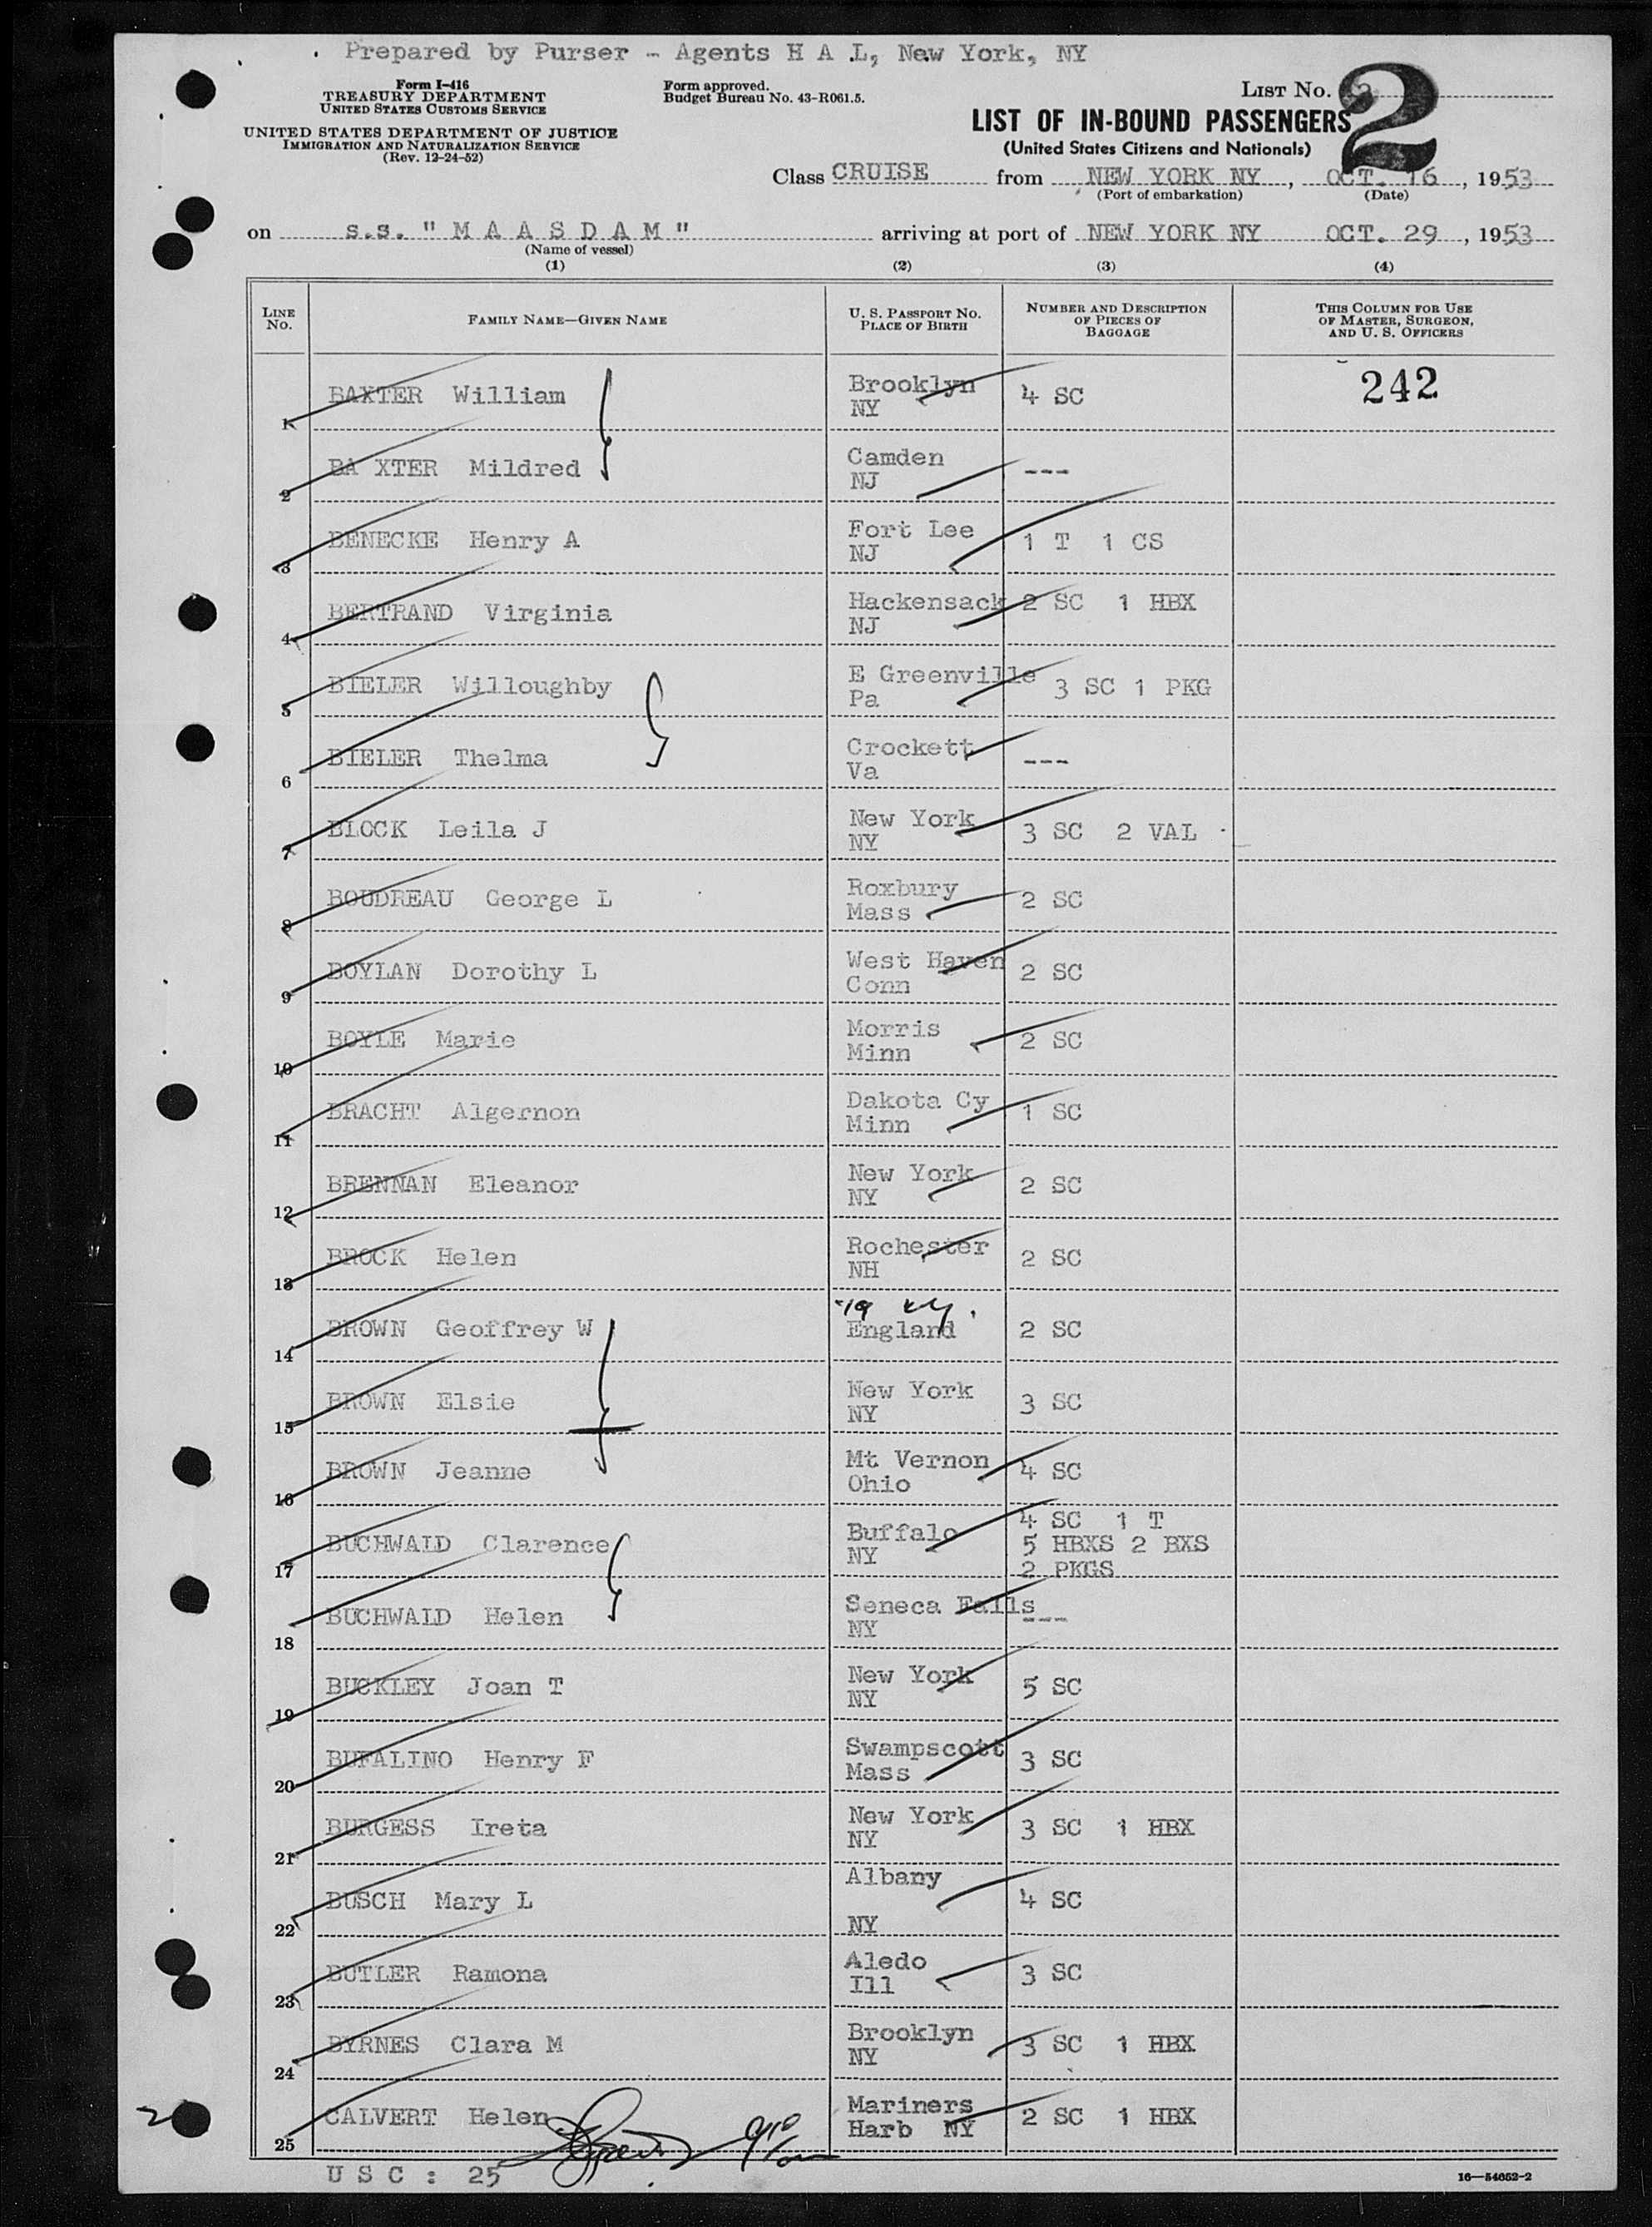 Prepared by Purser - Agents H A L, New York, NY
Form I-416
TREASURY DEPARTMENT
UNITED STATES CUSTOMS SERVICE
UNITED STATES DEPARTMENT OF JUSTICE
IMMIGRATION AND NATURALIZATION SERVICE
(Rev. 12-24-52)
Form approved.
Budget Bureau No. 43-R061.5.
LIST NO. 2
LIST OF IN-BOUND PASSENGERS
(United States Citizens and Nationals)
Class CRUISE from NEW YORK NY, OCT. 16, 1953
(Port of embarkation) (Date)
on s.s. "M A A S D A M" arriving at port of NEW YORK NY OCT. 29, 1953
(Name of vessel)
(1) (2) (3) (4)
LINE NO. FAMILY NAME—GIVEN NAME U. S. PASSPORT NO. PLACE OF BIRTH NUMBER AND DESCRIPTION OF PIECES OF BAGGAGE THIS COLUMN FOR USE OF MASTER, SURGEON, AND U. S. OFFICERS
1 BAXTER William Brooklyn NY 4 SC 242
2 BA XTER Mildred Camden NJ ---
3 BENECKE Henry A Fort Lee NJ 1 T 1 CS
4 BERTRAND Virginia Hackensack NJ 2 SC 1 HBX
5 BIELER Willoughby E Greenville Pa 3 SC 1 PKG
6 BIELER Thelma Crockett Va ---
7 BLOCK Leila J New York NY 3 SC 2 VAL
8 BOUDREAU George L Roxbury Mass 2 SC
9 BOYLAN Dorothy L West Haven Conn 2 SC
10 BOYLE Marie Morris Minn 2 SC
11 BRACHT Algernon Dakota Cy Minn 1 SC
12 BRENNAN Eleanor New York NY 2 SC
13 BROCK Helen Rochester NH 2 SC
14 BROWN Geoffrey W England 2 SC
15 BROWN Elsie New York NY 3 SC
16 BROWN Jeanne Mt Vernon Ohio 4 SC
17 BUCHWALD Clarence Buffalo NY 4 SC 1 T 5 HBXS 2 BXS 2 PKGS
18 BUCHWALD Helen Seneca Falls NY ---
19 BUCKLEY Joan T New York NY 5 SC
20 BUFALINO Henry F Swampscott Mass 3 SC
21 BURGESS Ireta New York NY 3 SC 1 HBX
22 BUSCH Mary L Albany NY 4 SC
23 BUTLER Ramona Aledo Ill 3 SC
24 BYRNES Clara M Brooklyn NY 3 SC 1 HBX
25 CALVERT Helen Mariners Harb NY 2 SC 1 HBX
U S C : 25
16—54652-2